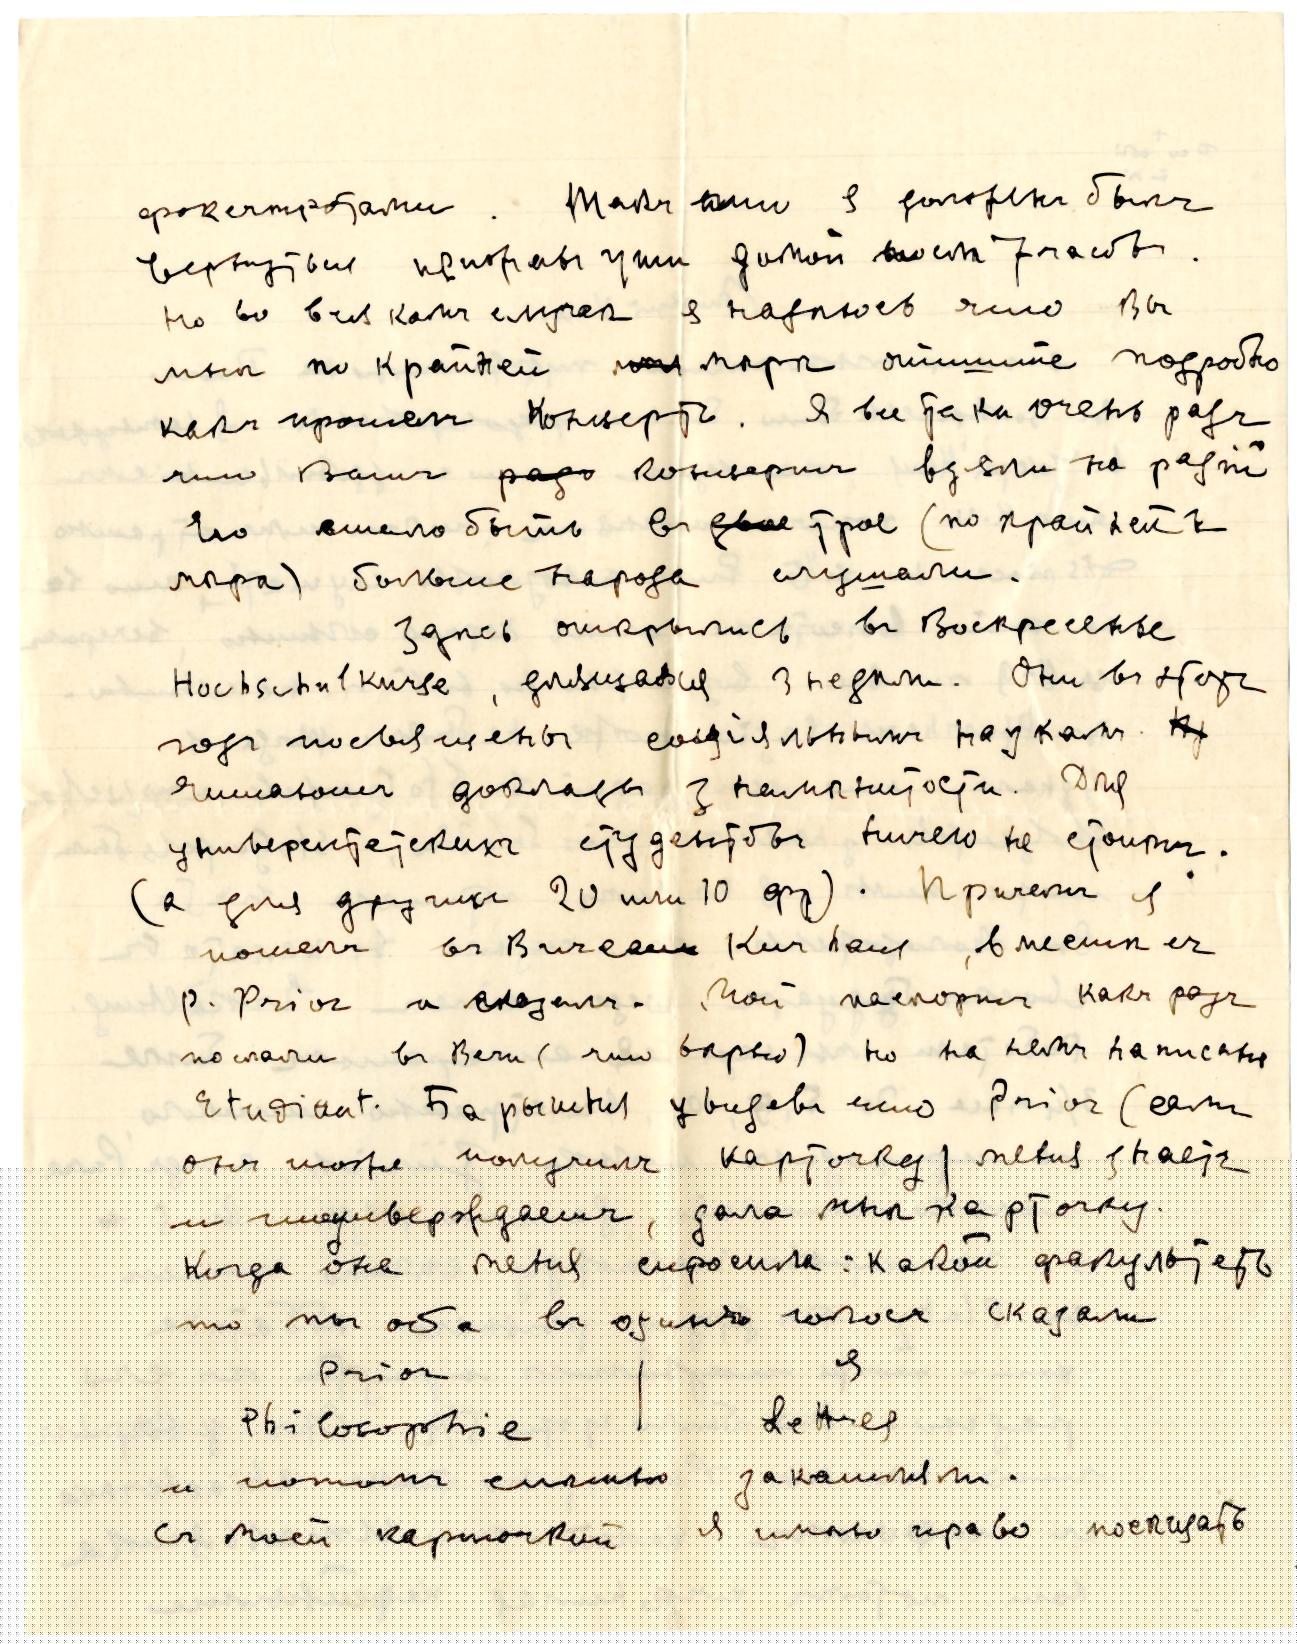 фокстротами. Такъ или я долженъ былъ
вернуться домой после 7 часовъ.
но во всякомъ случаѣ я надѣюсь что Вы
мнѣ по крайней мѣрѣ опишите подробно
какъ прошелъ Концертъ. Я все таки очень радъ
что Вашъ радо концертъ взяли на радiо
Его смело быть въ двое трое (по крайней
мѣра) больше народа слушали.
Здѣсь открылись въ Воскресенье
Hochschulkurse, длящаяся 3 недѣли. Они въ этомъ
годъ посвящены соціяльнымъ наукамъ.
Читаютъ доклады знаменитости. Для
университетскихъ студентовъ ничего не стоитъ.
(а для другихъ 20 или 10 фр). Причемъ я
пошелъ въ Bureau Kurhaus, вмѣстѣ съ
р. Prior и сказалъ. Мой паспортъ какъ разъ
послали въ Bern (что вѣрно) но на немъ написанно
Etudiant. Барышня увидевъ что Prior (самъ
онъ тоже получилъ карточку) меня знаетъ
и подтверждаетъ, дала мнѣ карточку.
Когда она меня спросила: какой факультетъ
то мы оба въ одинъ голосъ сказали
Prior | я
Philosophie | Lettres
и потомъ сильно закашляли.
Съ моей карточкой я имѣю право посѣщать